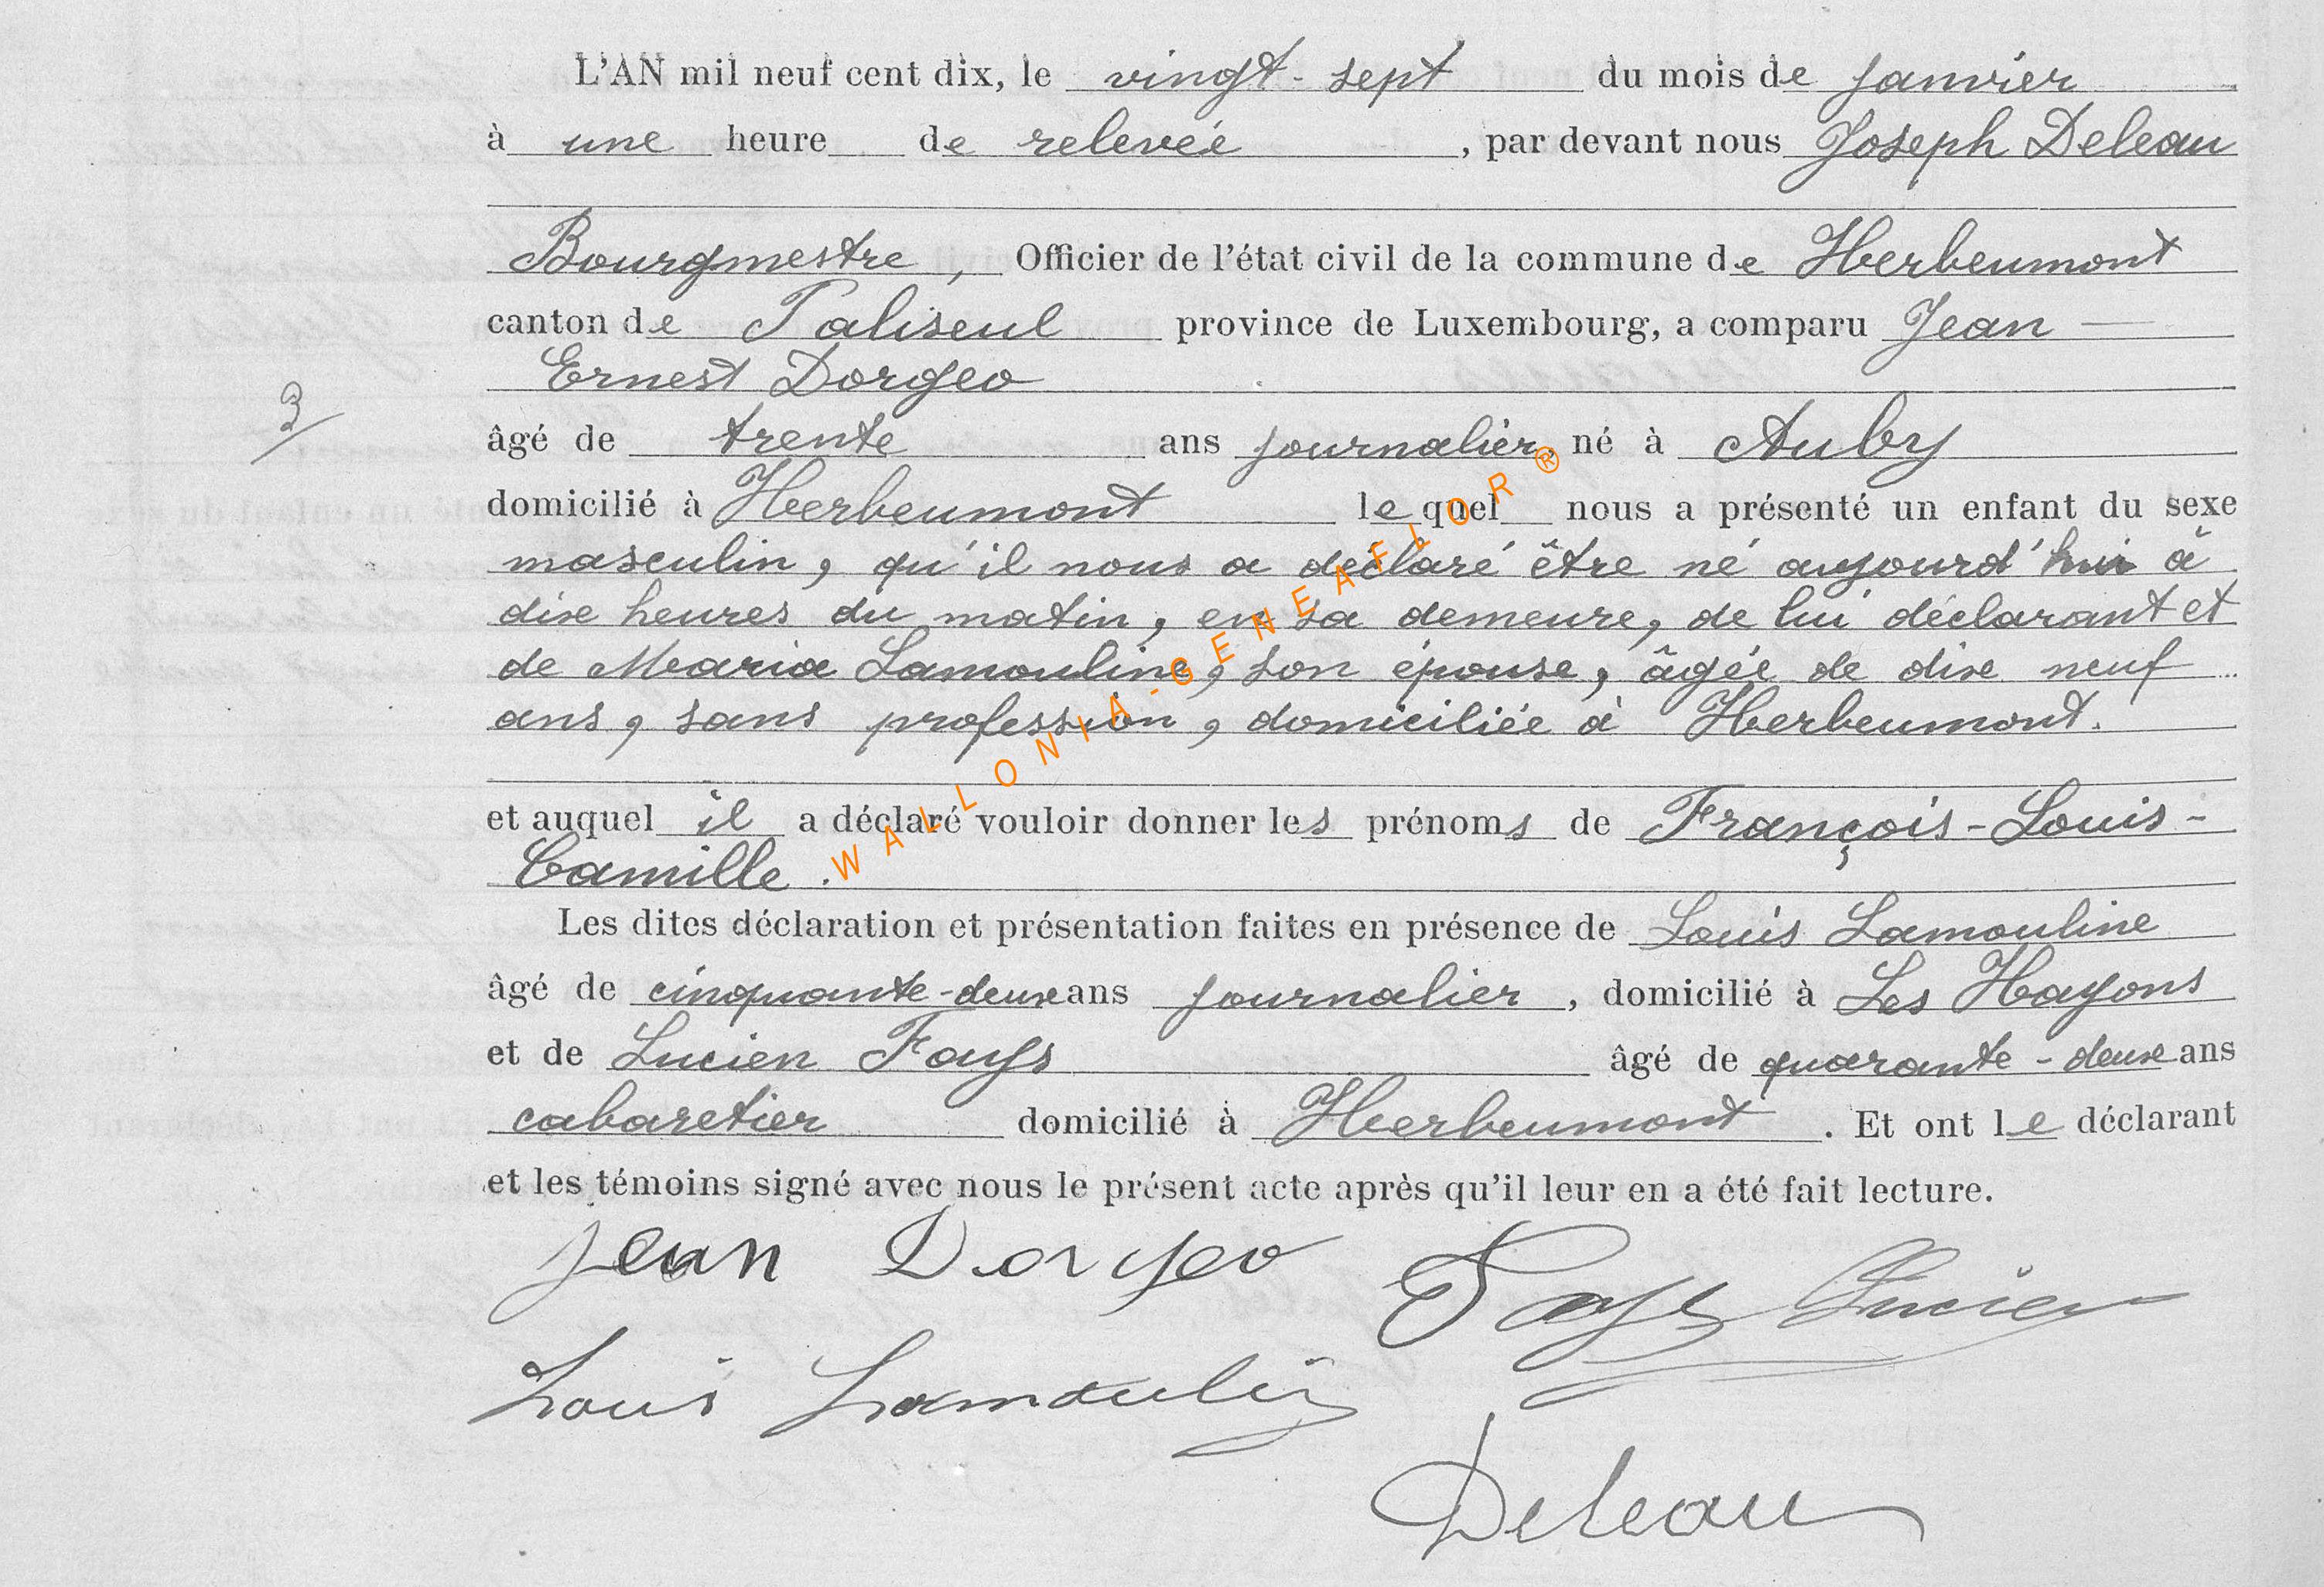 L'AN mil neuf cent dix, le vingt-sept du mois de janvier
à une heure de relevée, par devant nous Joseph Deleau
Bourgmestre, Officier de l'état civil de la commune de Herbeumont
canton de Paliseul province de Luxembourg, a comparu Jean —
Ernest Dorgeo
3/
âgé de trente ans journalier, né à Auby
domicilié à Herbeumont lequel nous a présenté un enfant du sexe
masculin, qu'il nous a déclaré être né aujourd'hui à
dix heures du matin, en sa demeure, de lui déclarant et
de Maria Lamouline, son épouse, âgée de dix neuf
ans, sans profession, domiciliée à Herbeumont.
et auquel il a déclaré vouloir donner les prénoms de François-Louis-
Camille.
Les dites déclaration et présentation faites en présence de Louis Lamouline
âgé de cinquante-deux ans journalier, domicilié à Les Hayons
et de Lucien Fays âgé de quarante-deux ans
cabaretier domicilié à Herbeumont. Et ont le déclarant
et les témoins signé avec nous le présent acte après qu'il leur en a été fait lecture.
Jean Dorgeo Fays Lucien
Louis Lamoulin
Deleau
WALLONIA-GENEAFLOR ®